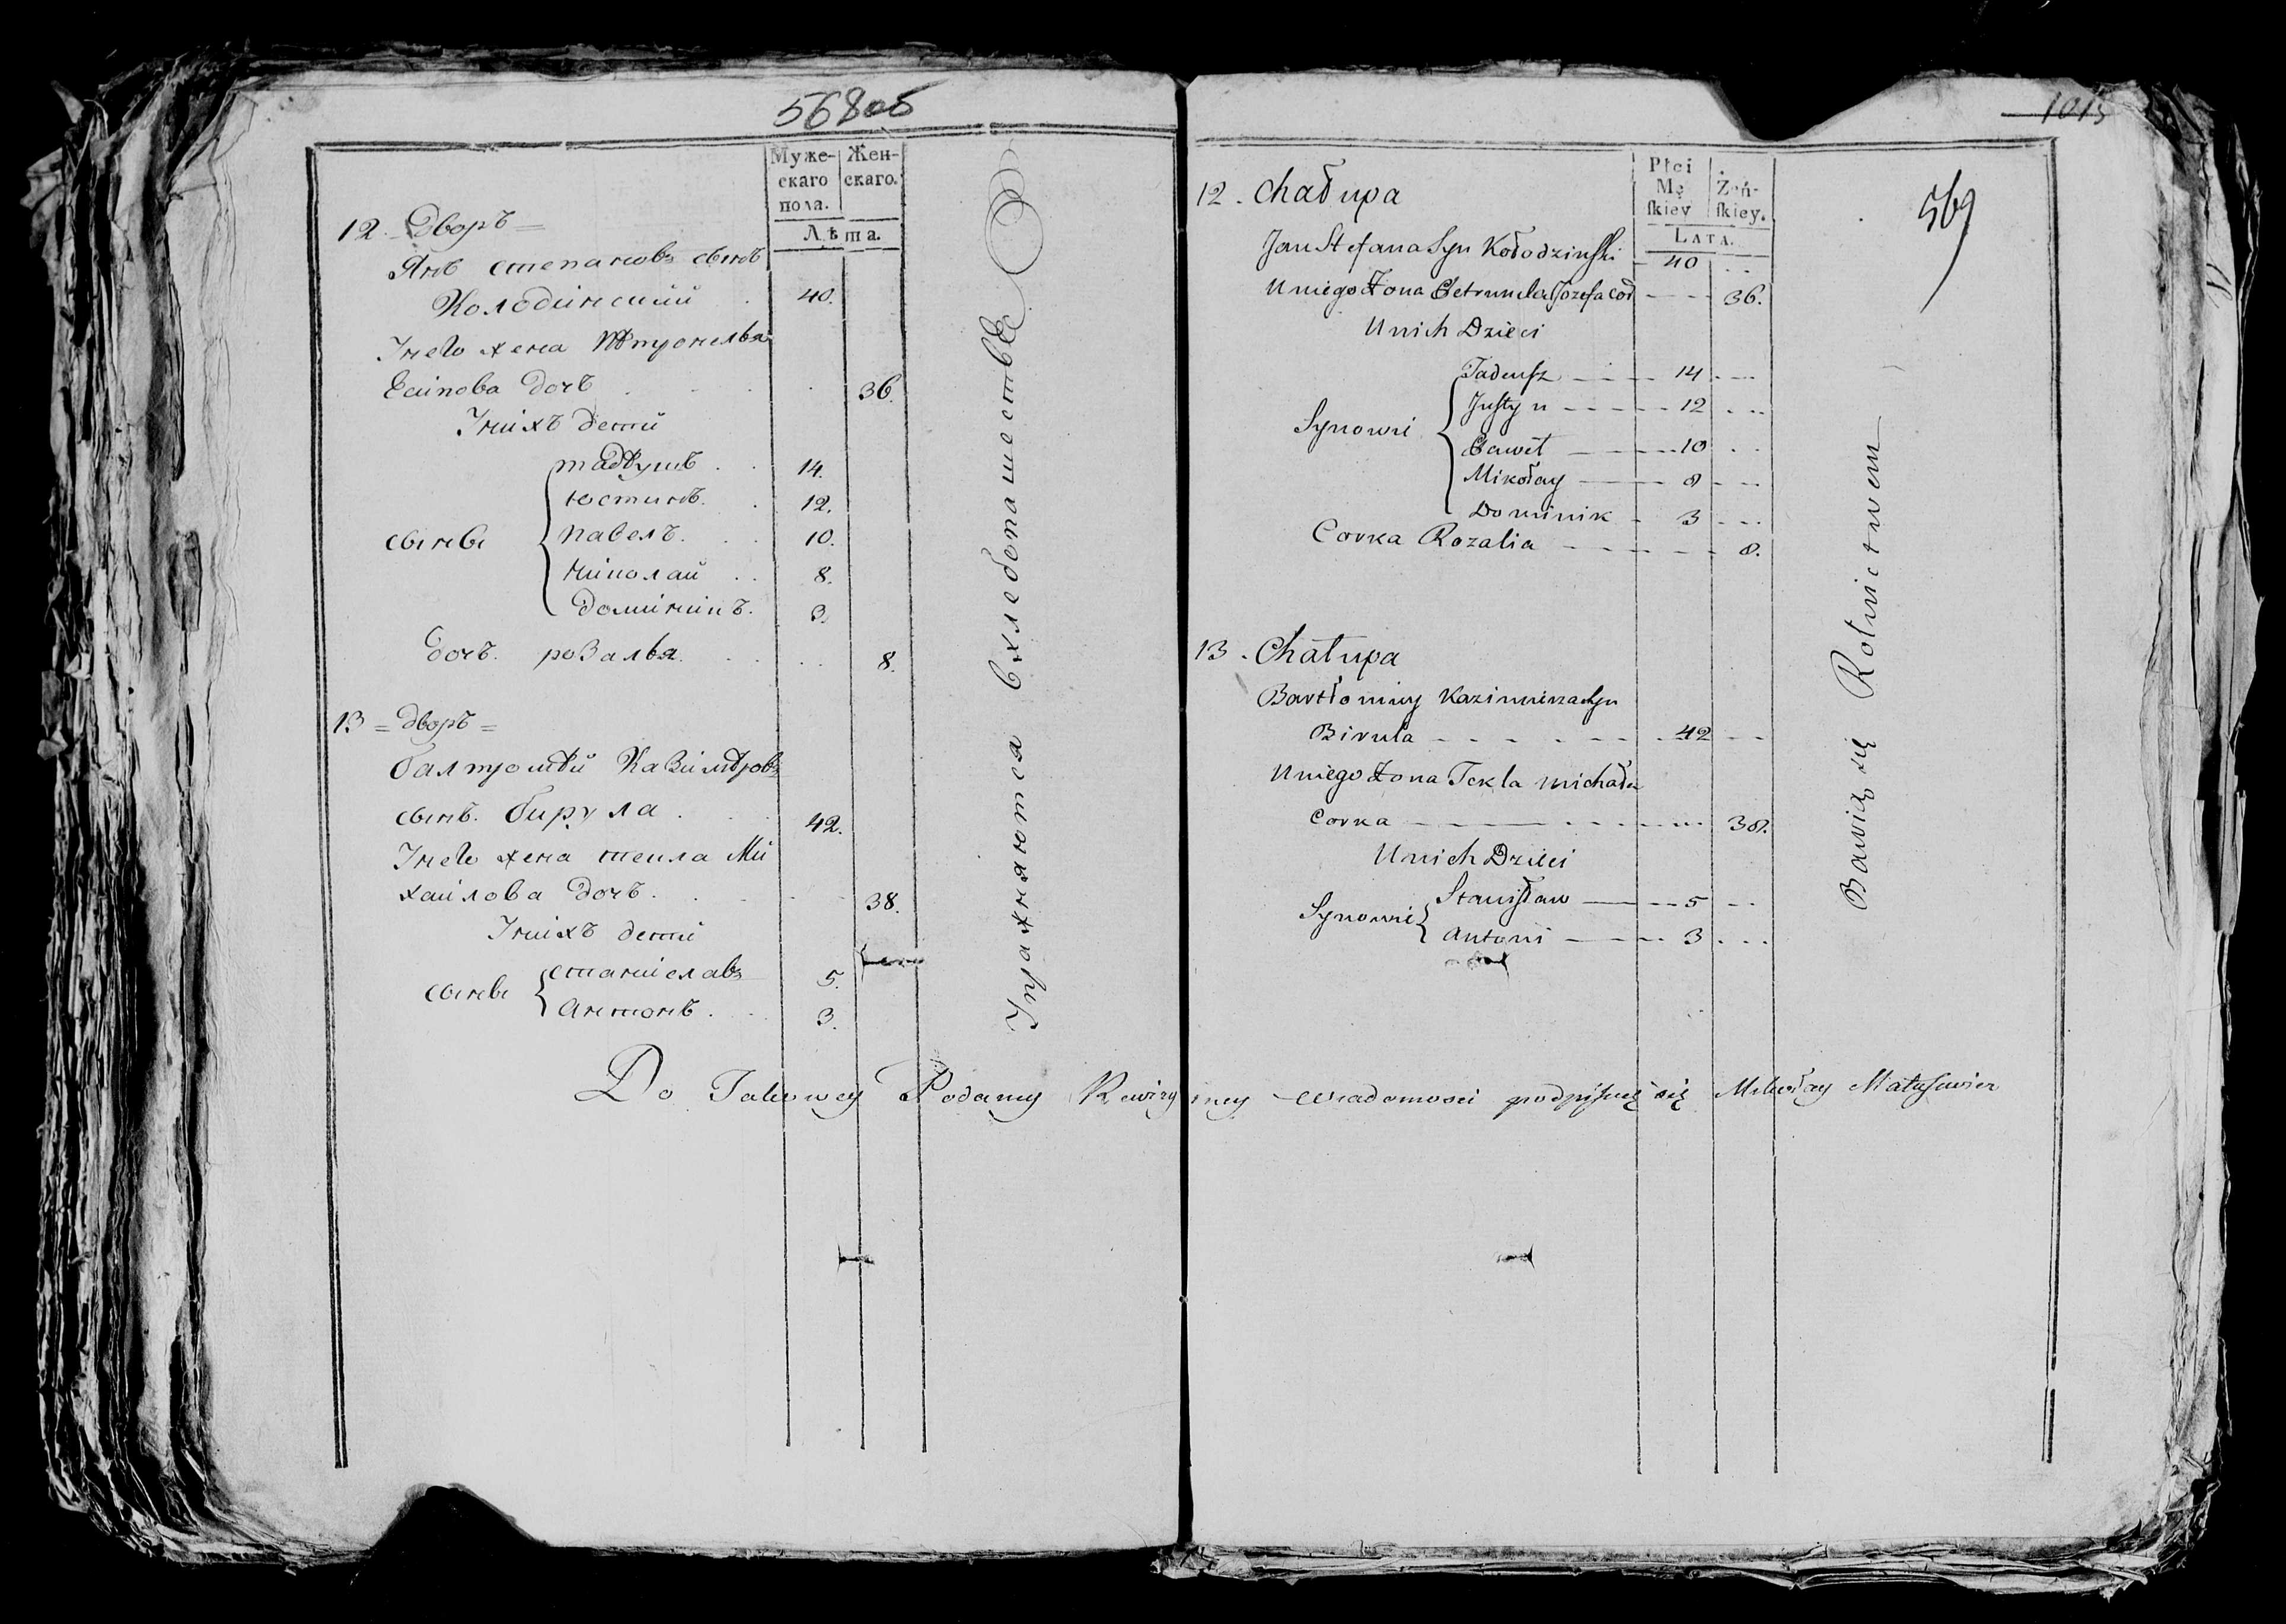 568об
Муже-
скаго
пола.
Жен-
скаго.
Лѣта.
12. Дворъ =
Янъ степановъ сынъ
Колодинский . 40.
Унего жена Птронеля
Есипова дочъ . . . 36.
Унихъ дети
сыны
тадеушъ . . 14.
юстинъ . . 12.
павелъ . . 10.
николай . . 8.
доминикъ. 3.
дочъ. розалья . . . . 8.
13 = дворъ =
балтромѣй Казимѣровъ
сынъ. бирула . . . 42.
Унего жена текла Ми
хайлова дочъ . . . . 38.
Унихъ дети
сыны
станиславъ 5.
антонъ . . . 3.
Упражняются в хлебопашестве
1015
569
Płci
Mę
ſkiey
Żeń-
ſkiey.
LATA.
12. Chałupa
Jan Stefana Syn Kołodzinski - 40 . .
U niego Zona Petrunela Jozefa Cor - - - - 36.
U nich Dzieci
Synowie
Tadeusz — - — - 14 . - -
Justyn - - - - - - 12 . . .
Paweł — - - - - 10 . .
Mikołay — - - - 8 - - -
Dominik - 3 - - -
Corka Rozalia - - - - - - - 8.
13. Chałupa
Bartłomiey Kazimierza Syn
Birula - - - - - - - . 42 - -
U niego Zona Tekla Michała
Corka - - — - - - - - - 38.
U nich Dzieci
Synowie
Stanisław — - - 5 - -
Antoni — - - - 3 . . .
Bawią się Rolnictwem
Do Takowey Podaney Rewizyiney wiadomosci podpisuię się Mikołay Matusewicz